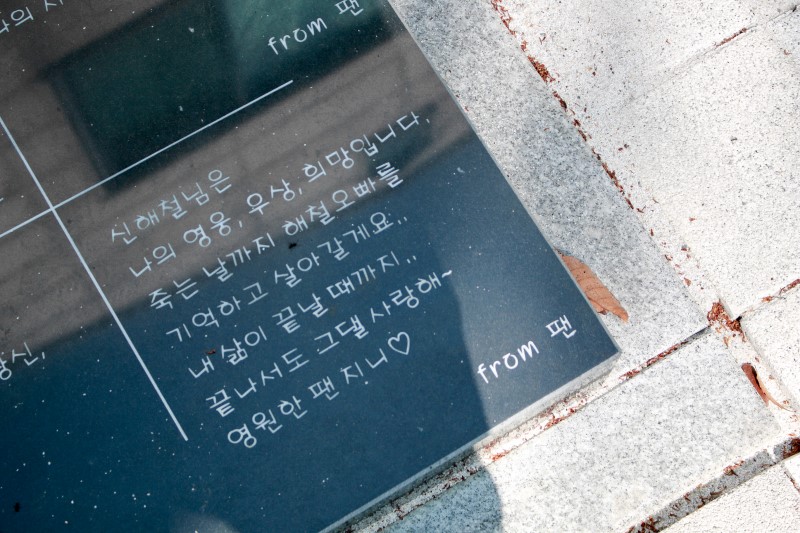 from 팬
신해철님은
나의 영웅, 우상, 희망입니다.
죽는 날까지 해철오빠를
기억하고 살아갈게요..
내 삶이 끝날 때까지..
끝나서도 그댈 사랑해~
영원한 팬 지니♡
from 팬